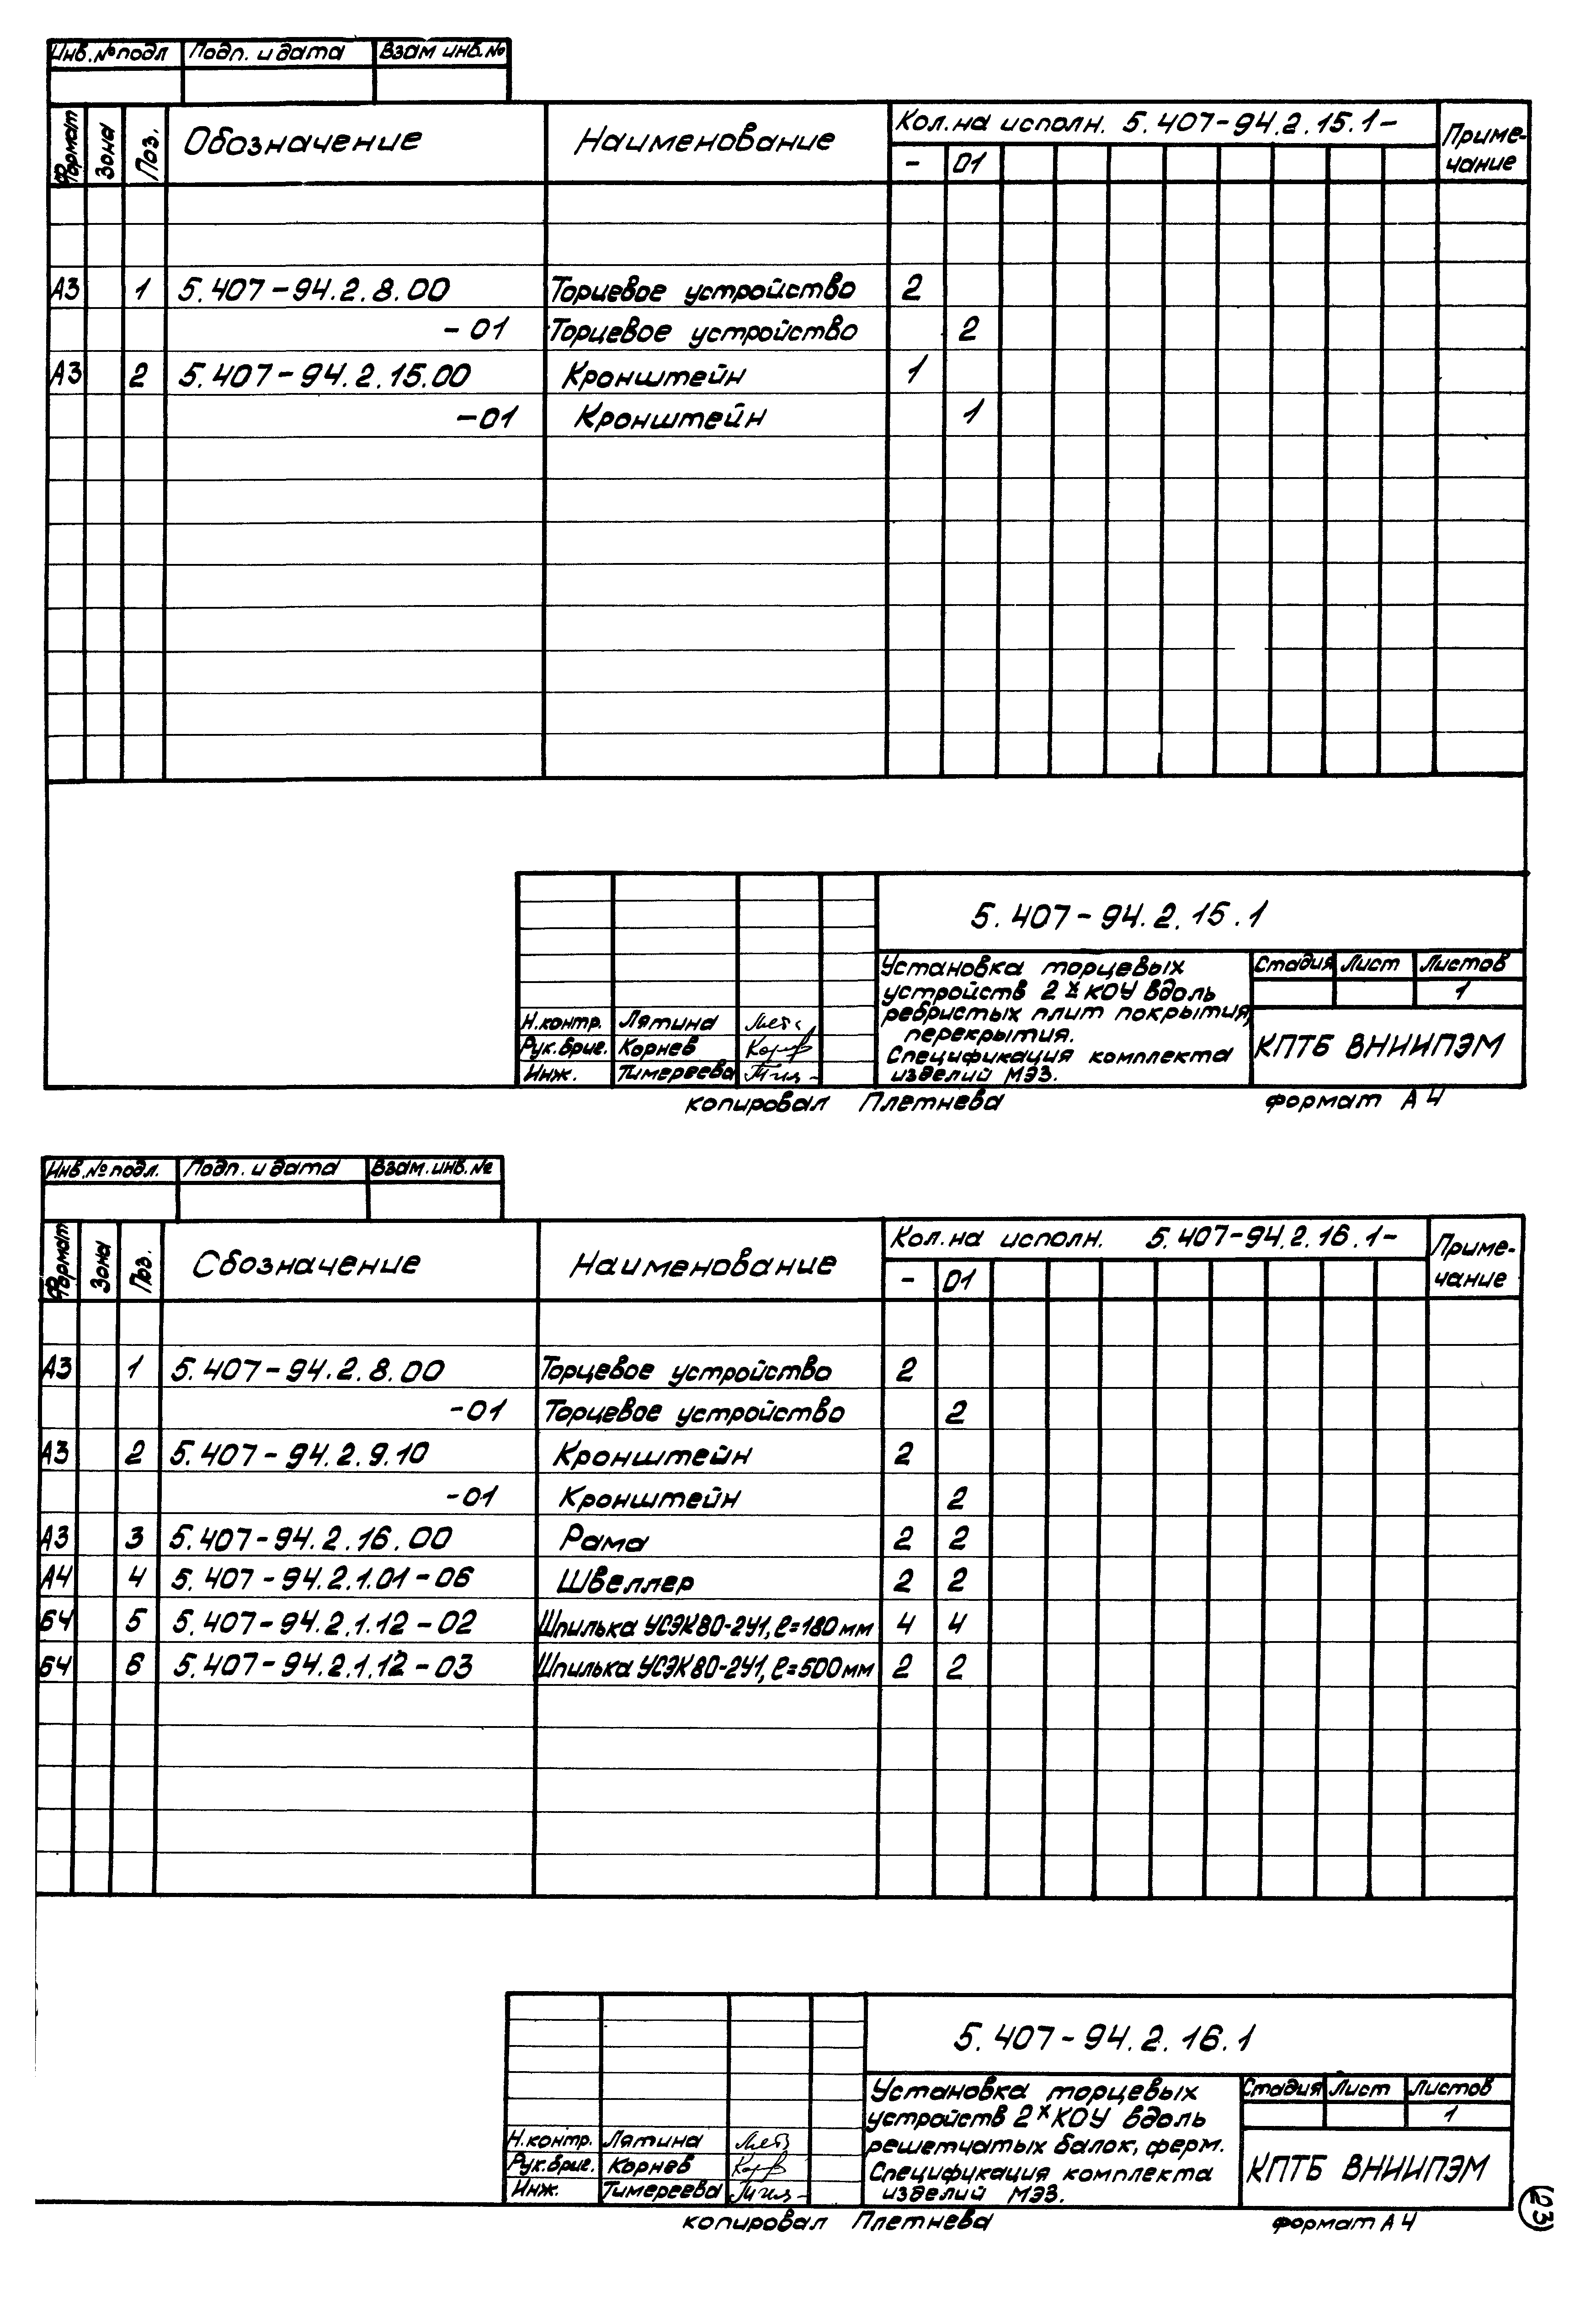 Инв.№подл Подп. и дата Взам инв.№
Формат Зона Поз. Обозначение Наименование Кол.на исполн. 5.407-94.2.15.1- Приме-
чание
- 01
А3 1 5.407-94.2.8.00 Торцевое устройство 2
-01 Торцевое устройство 2
А3 2 5.407-94.2.15.00 Кронштейн 1
-01 Кронштейн 1
5.407-94.2.15.1
Установка торцевых
устройств 2хКОУ вдоль
ребристых плит покрытия,
перекрытия.
Спецификация комплекта
изделий МЭЗ.
Стадия Лист Листов
1
Н.контр. Лятина
Рук.бриг. Корнев
Инж. Тимереева
КПТБ ВНИИПЭМ
копировал Плетнева формат А4
Инв.№подл. Подп. и дата Взам.инв.№
Формат Зона Поз. Обозначение Наименование Кол.на исполн. 5.407-94.2.16.1- Приме-
чание
- 01
А3 1 5.407-94.2.8.00 Торцевое устройство 2
-01 Торцевое устройство 2
А3 2 5.407-94.2.9.10 Кронштейн 2
-01 Кронштейн 2
А3 3 5.407-94.2.16.00 Рама 2 2
А4 4 5.407-94.2.1.01-06 Швеллер 2 2
Б4 5 5.407-94.2.1.12-02 Шпилька УСЭК80-2У1, ℓ=180мм 4 4
Б4 6 5.407-94.2.1.12-03 Шпилька УСЭК80-2У1, ℓ=500мм 2 2
5.407-94.2.16.1
Установка торцевых
устройств 2хКОУ вдоль
решетчатых балок, ферм.
Спецификация комплекта
изделий МЭЗ.
Стадия Лист Листов
1
Н.контр. Лятина
Рук.бриг. Корнев
Инж. Тимереева
КПТБ ВНИИПЭМ
копировал Плетнева формат А4
23